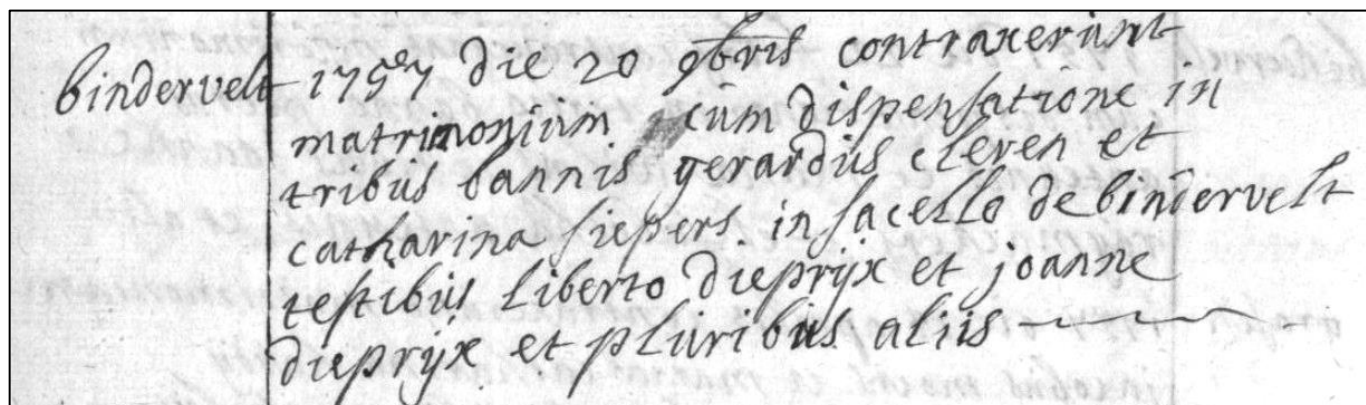 bindervelt
1757 die 20 9bris contraxerunt
matrimonium cum dispensatione in
tribus bannis gerardus cleren et
catharina siepers in sacello de bindervelt
testibus liberto dieprijx et joanne
dieprijx et pluribus aliis